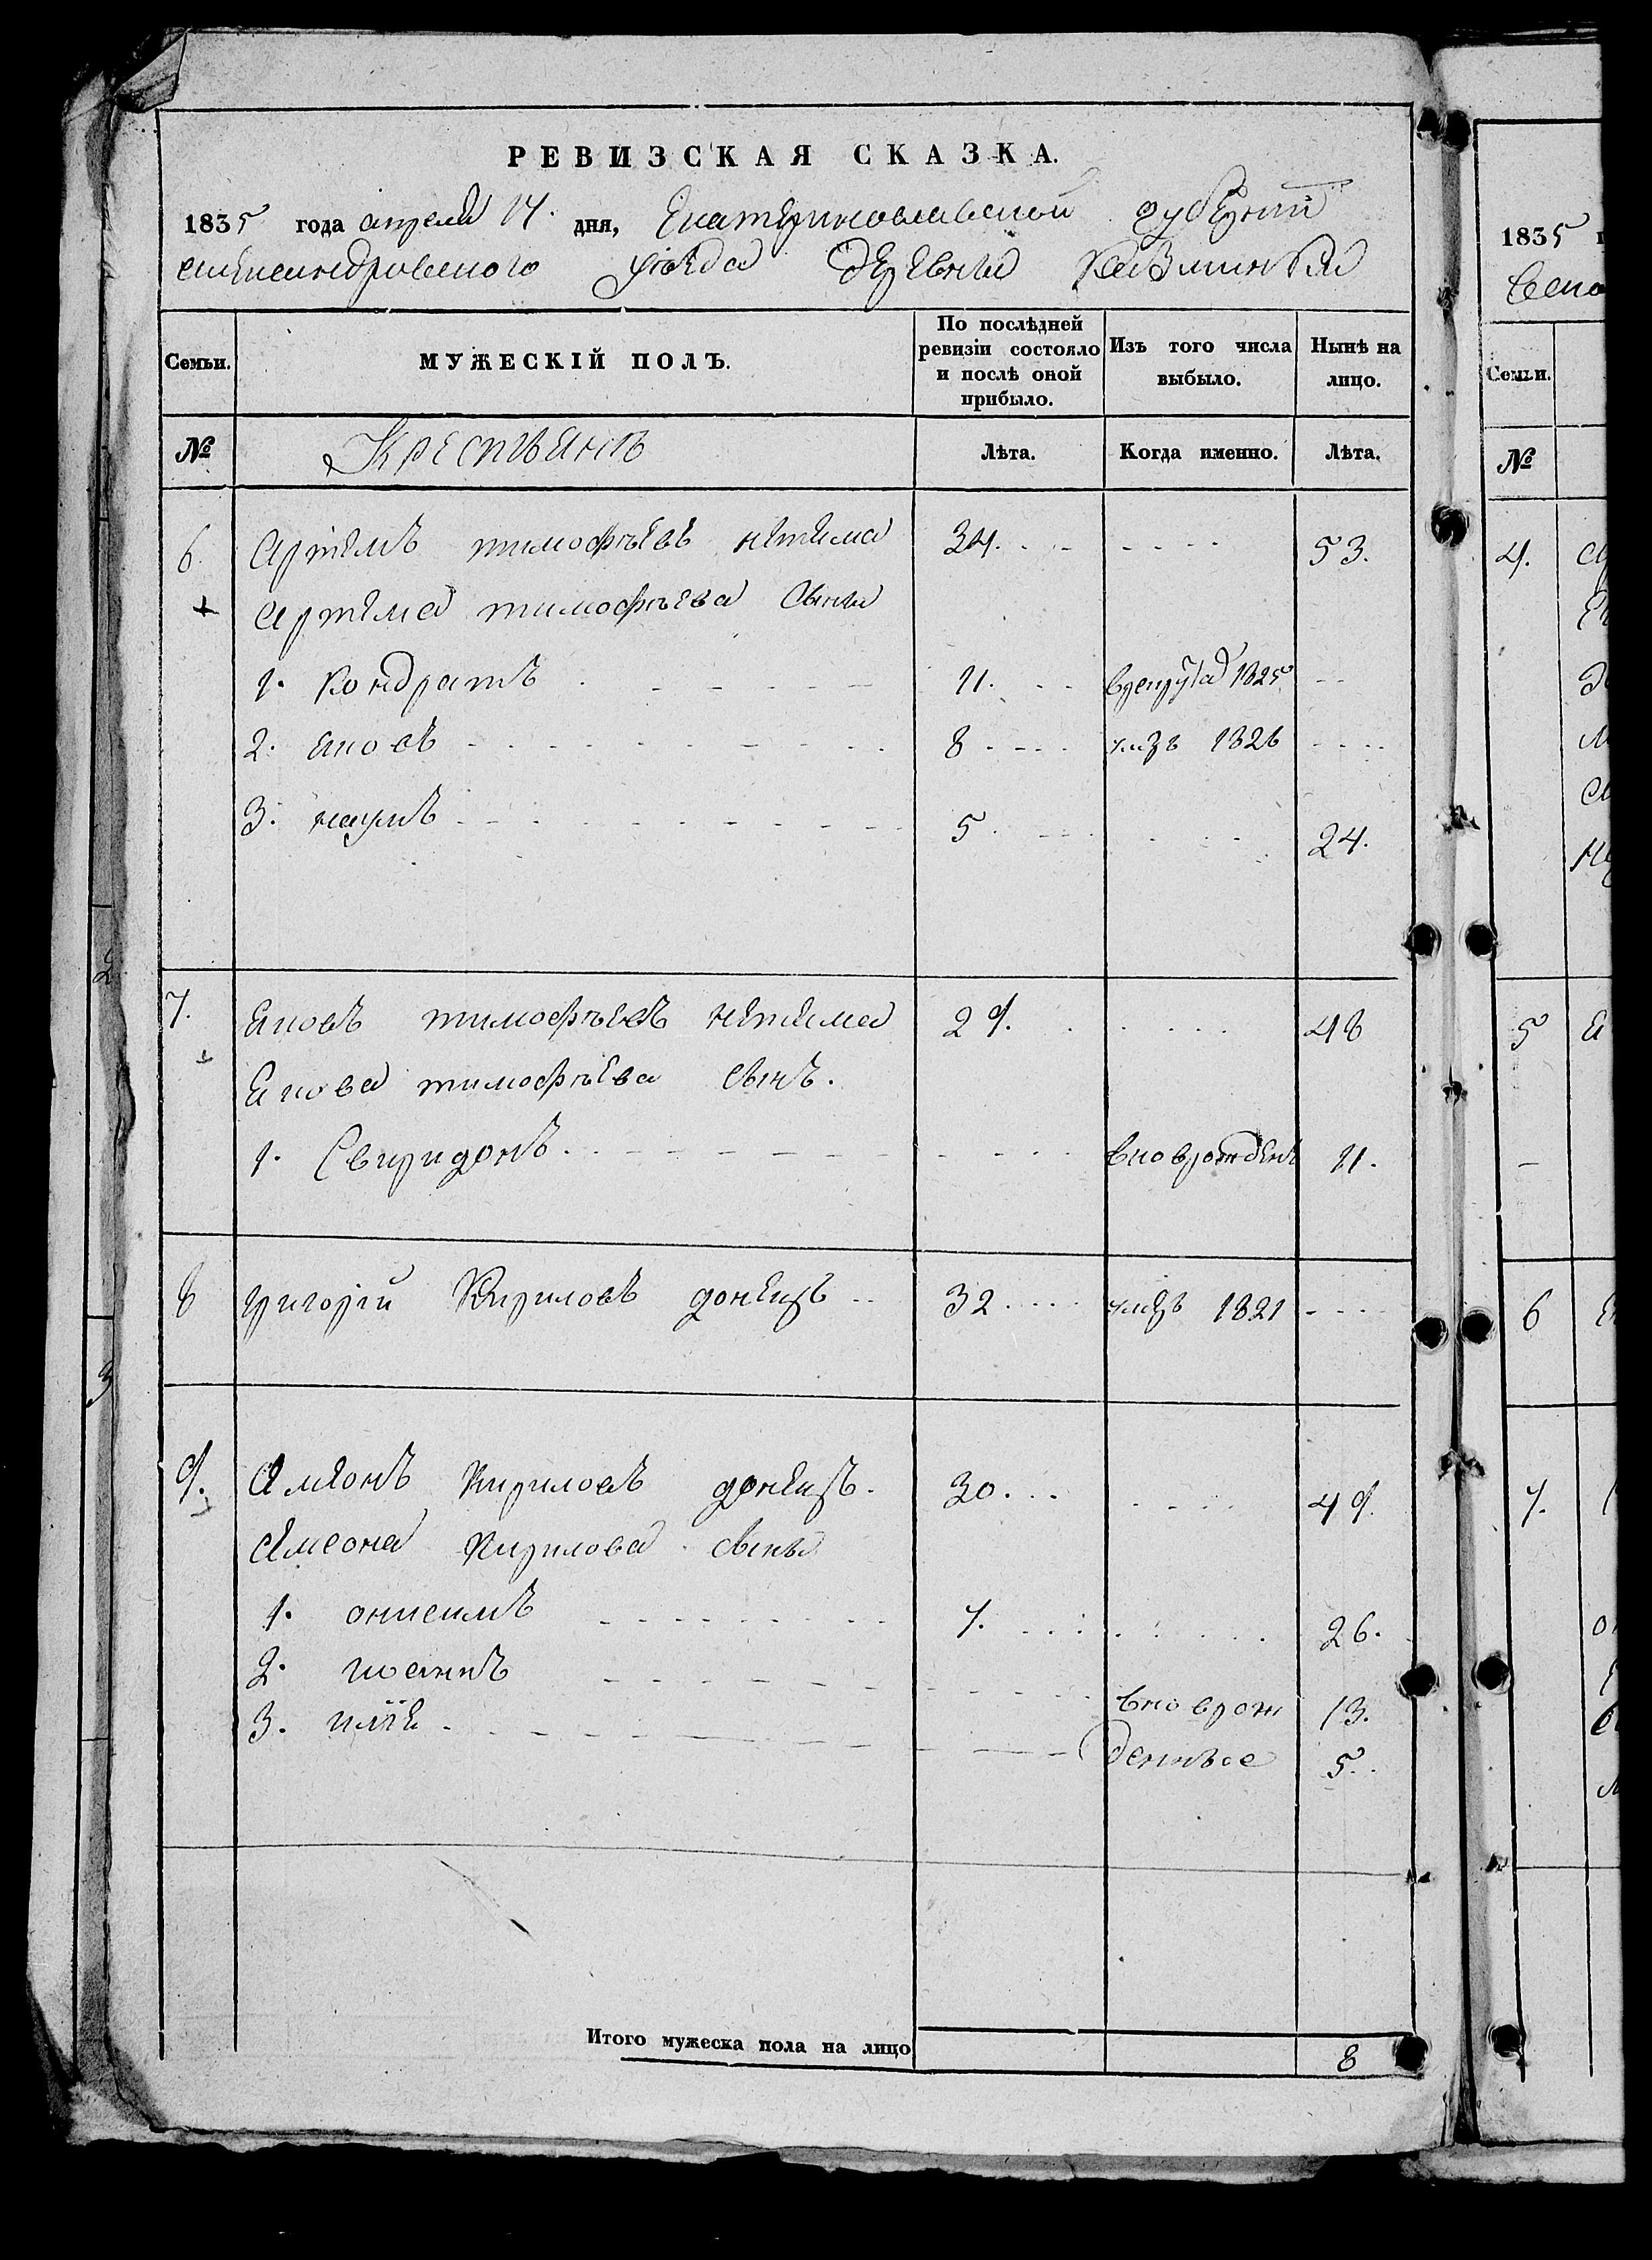 РЕВИЗСКАЯ СКАЗКА.
1835 года апреля 14. дня, Екатеринославской губернии
александровского уѣзда деревни
Семьи. МУЖЕСКІЙ ПОЛЪ. По послѣдней ревизіи состояло и послѣ оной прибыло. Изъ того числа выбыло. Нынѣ на лицо.
№ Крестьянъ Лѣта. Когда именно. Лѣта.
6 Артемъ тимофѣевъ нетяма 34. 53.
Артема тимофѣева сыны
1. кондратъ 11. 1825
2. яковъ 8 умеръ 1826
3. наумъ 5 24.
7. яковъ тимофѣевъ нетяма 29. 48
якова тимофѣева сынъ.
1. Свиридонъ вноврожденъ 11.
8 григорій Кириловъ донецъ 32 умеръ 1821
9. Ямеонъ Кириловъ донецъ. 30 49.
Ямеона Кирилова сыны
1. онисимъ 7. 26.
2. иоаннъ вноврож 13.
3. илїя денные 5.
Итого мужеска пола на лицо 8
2
3
1835
Семьи.
№
4.
5
6
7.